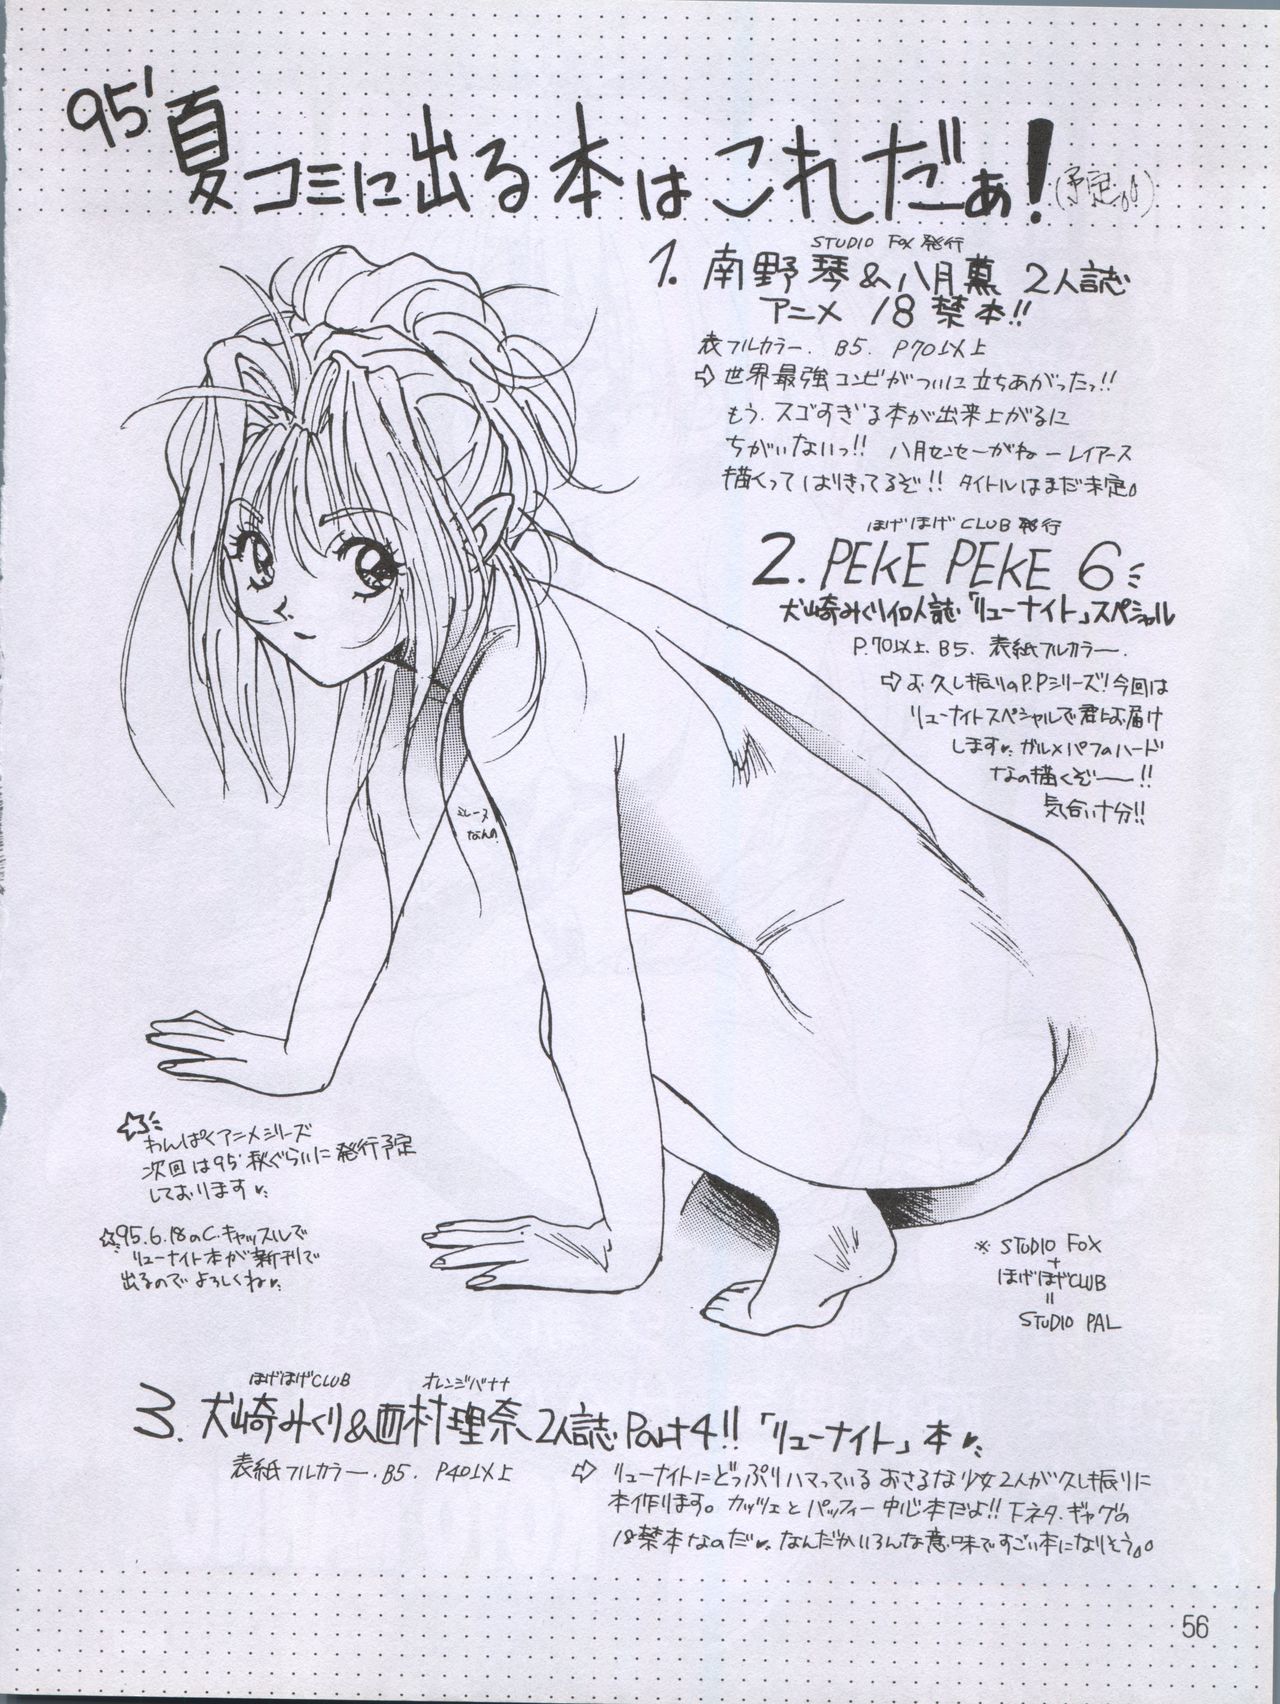 95' 夏コミに出る本はこれだぁ!(予定)
STUDIO FOX 発行
1. 南野琴&八月薫 2人誌
アニメ 18禁本!!
表フルカラー. B5. P70以上
⇨ 世界最強コンビがついに立ちあがったっ!!
もう、スゴすぎる本が出来上がるに
ちがいないっ!! 八月センセーがねーレイアース
描くってはりきってるぞ!! タイトルはまだ未定。
ほげほげCLUB発行
2. PEKE PEKE 6
犬崎みくり個人誌「リューナイト」スペシャル
P.70以上. B5. 表紙フルカラー.
⇨ お久し振りのP.Pシリーズ!今回は
リューナイトスペシャルで君にお届け
します♥ ガルメパフのハード
なの描くぞ——!!
気合い十分!!
ミレーヌ
なんの
☆わんぱくアニメシリーズ
次回は95'秋ぐらいに発行予定
しております♥
☆95.6.18のC.キャッスルで
リューナイト本が新刊で
出るのでよろしくね♥
※ STUDIO FOX
+
ほげほげCLUB
=
STUDIO PAL
ほげほげCLUB オレンジバナナ
3. 犬崎みくり&西村理奈 2人誌 Part4!!「リューナイト」本♥
表紙フルカラー. B5. P40以上
⇨ リューナイトにどっぷりハマっているおさるな少女2人が久し振りに
本作ります。カッツェとパッフィー中心本だよ!! 下ネタ・ギャグの
18禁本なのだ♥ なんだかいろんな意味ですごい本になりそう。
56